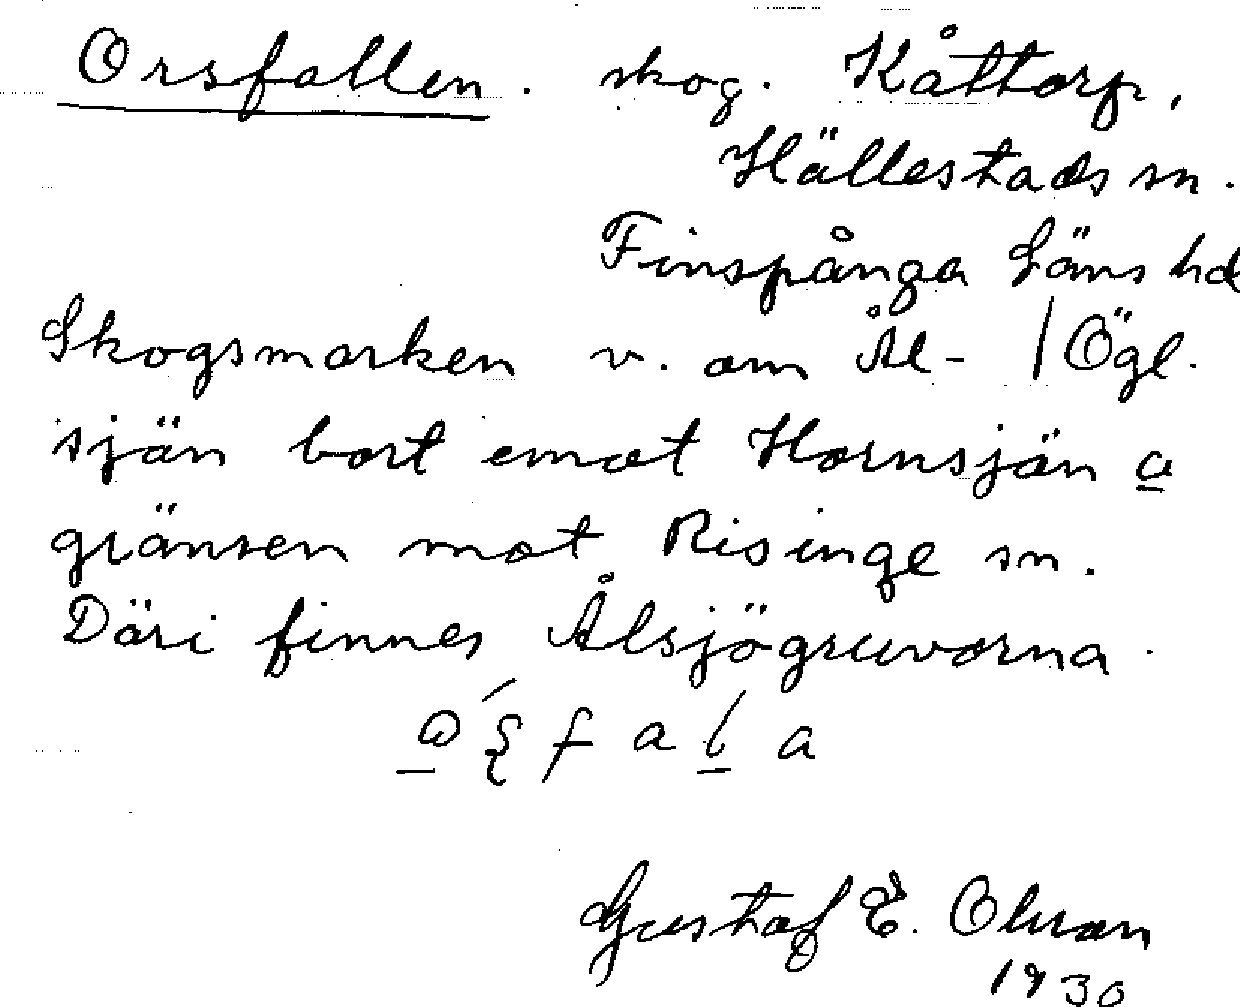 Orsfallen. skog. Kåttorp,
Hällestads sn.
Finspånga Läns hd
Skogsmarken v. om Ål- / Ögl.
sjön bort emot Hornsjön a
gränsen mot Risinge sn.
Däri finnes Ålsjögruvorna.
Gustaf E. Olsson
1930